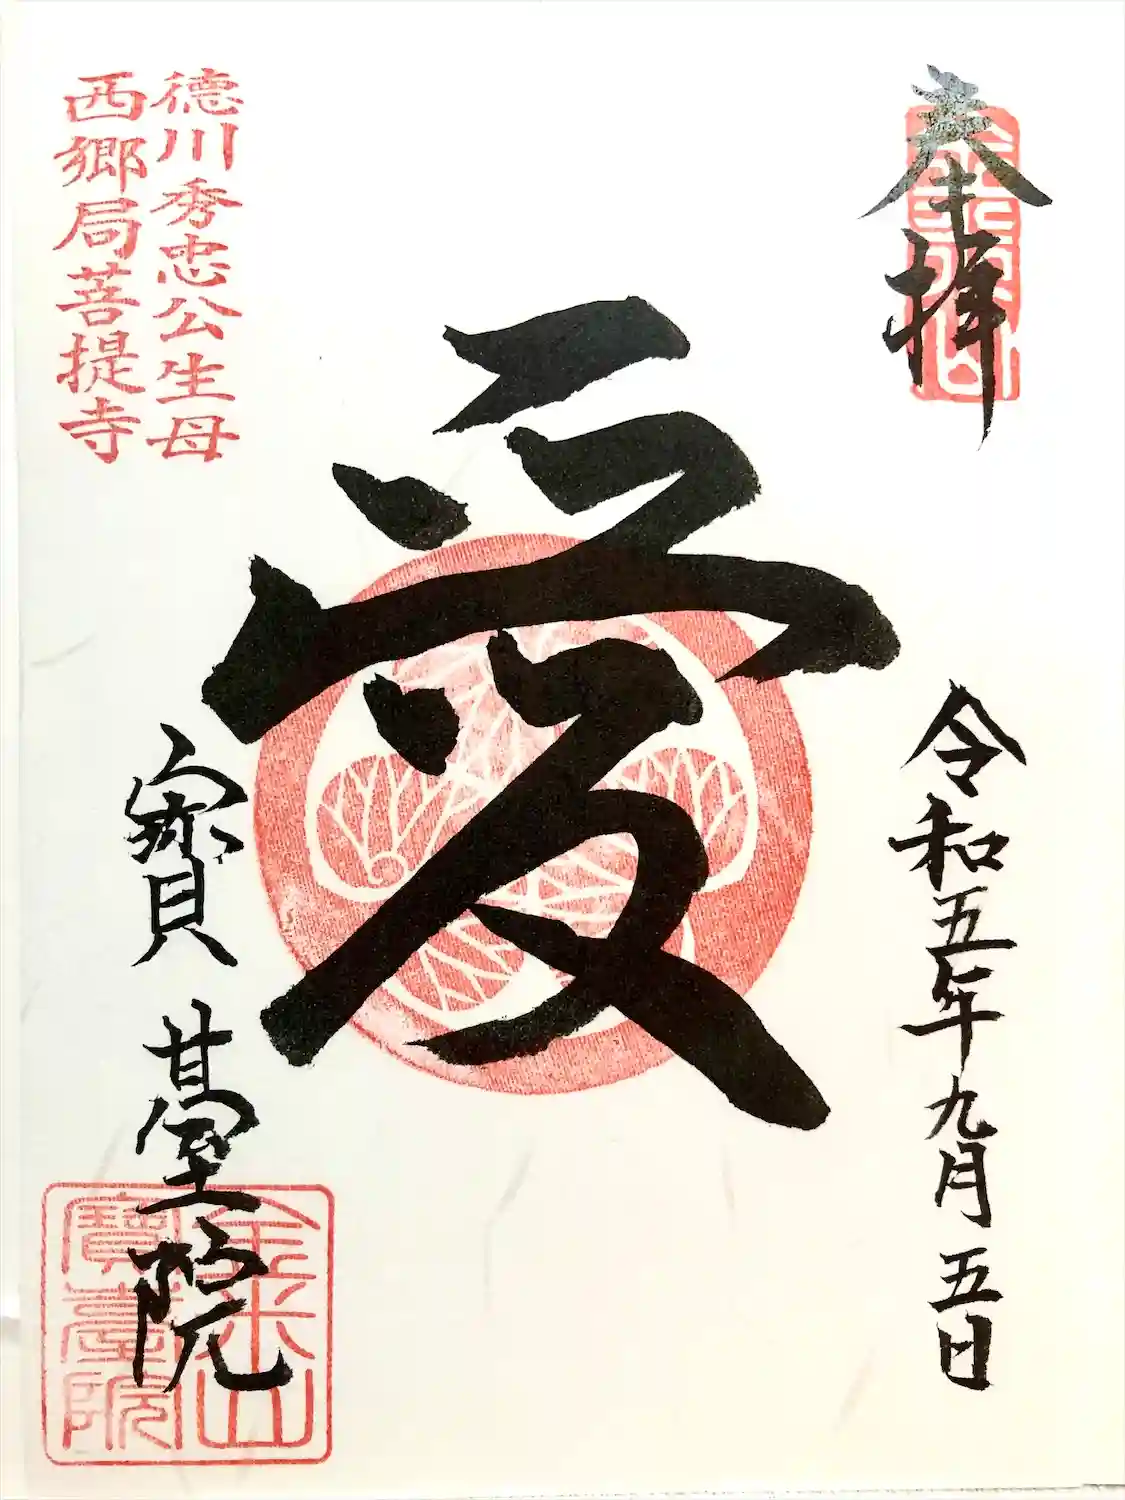 奉拝
令和五年九月五日
愛
德川秀忠公生母
西郷局菩提寺
寶臺院
金米山
寶臺院